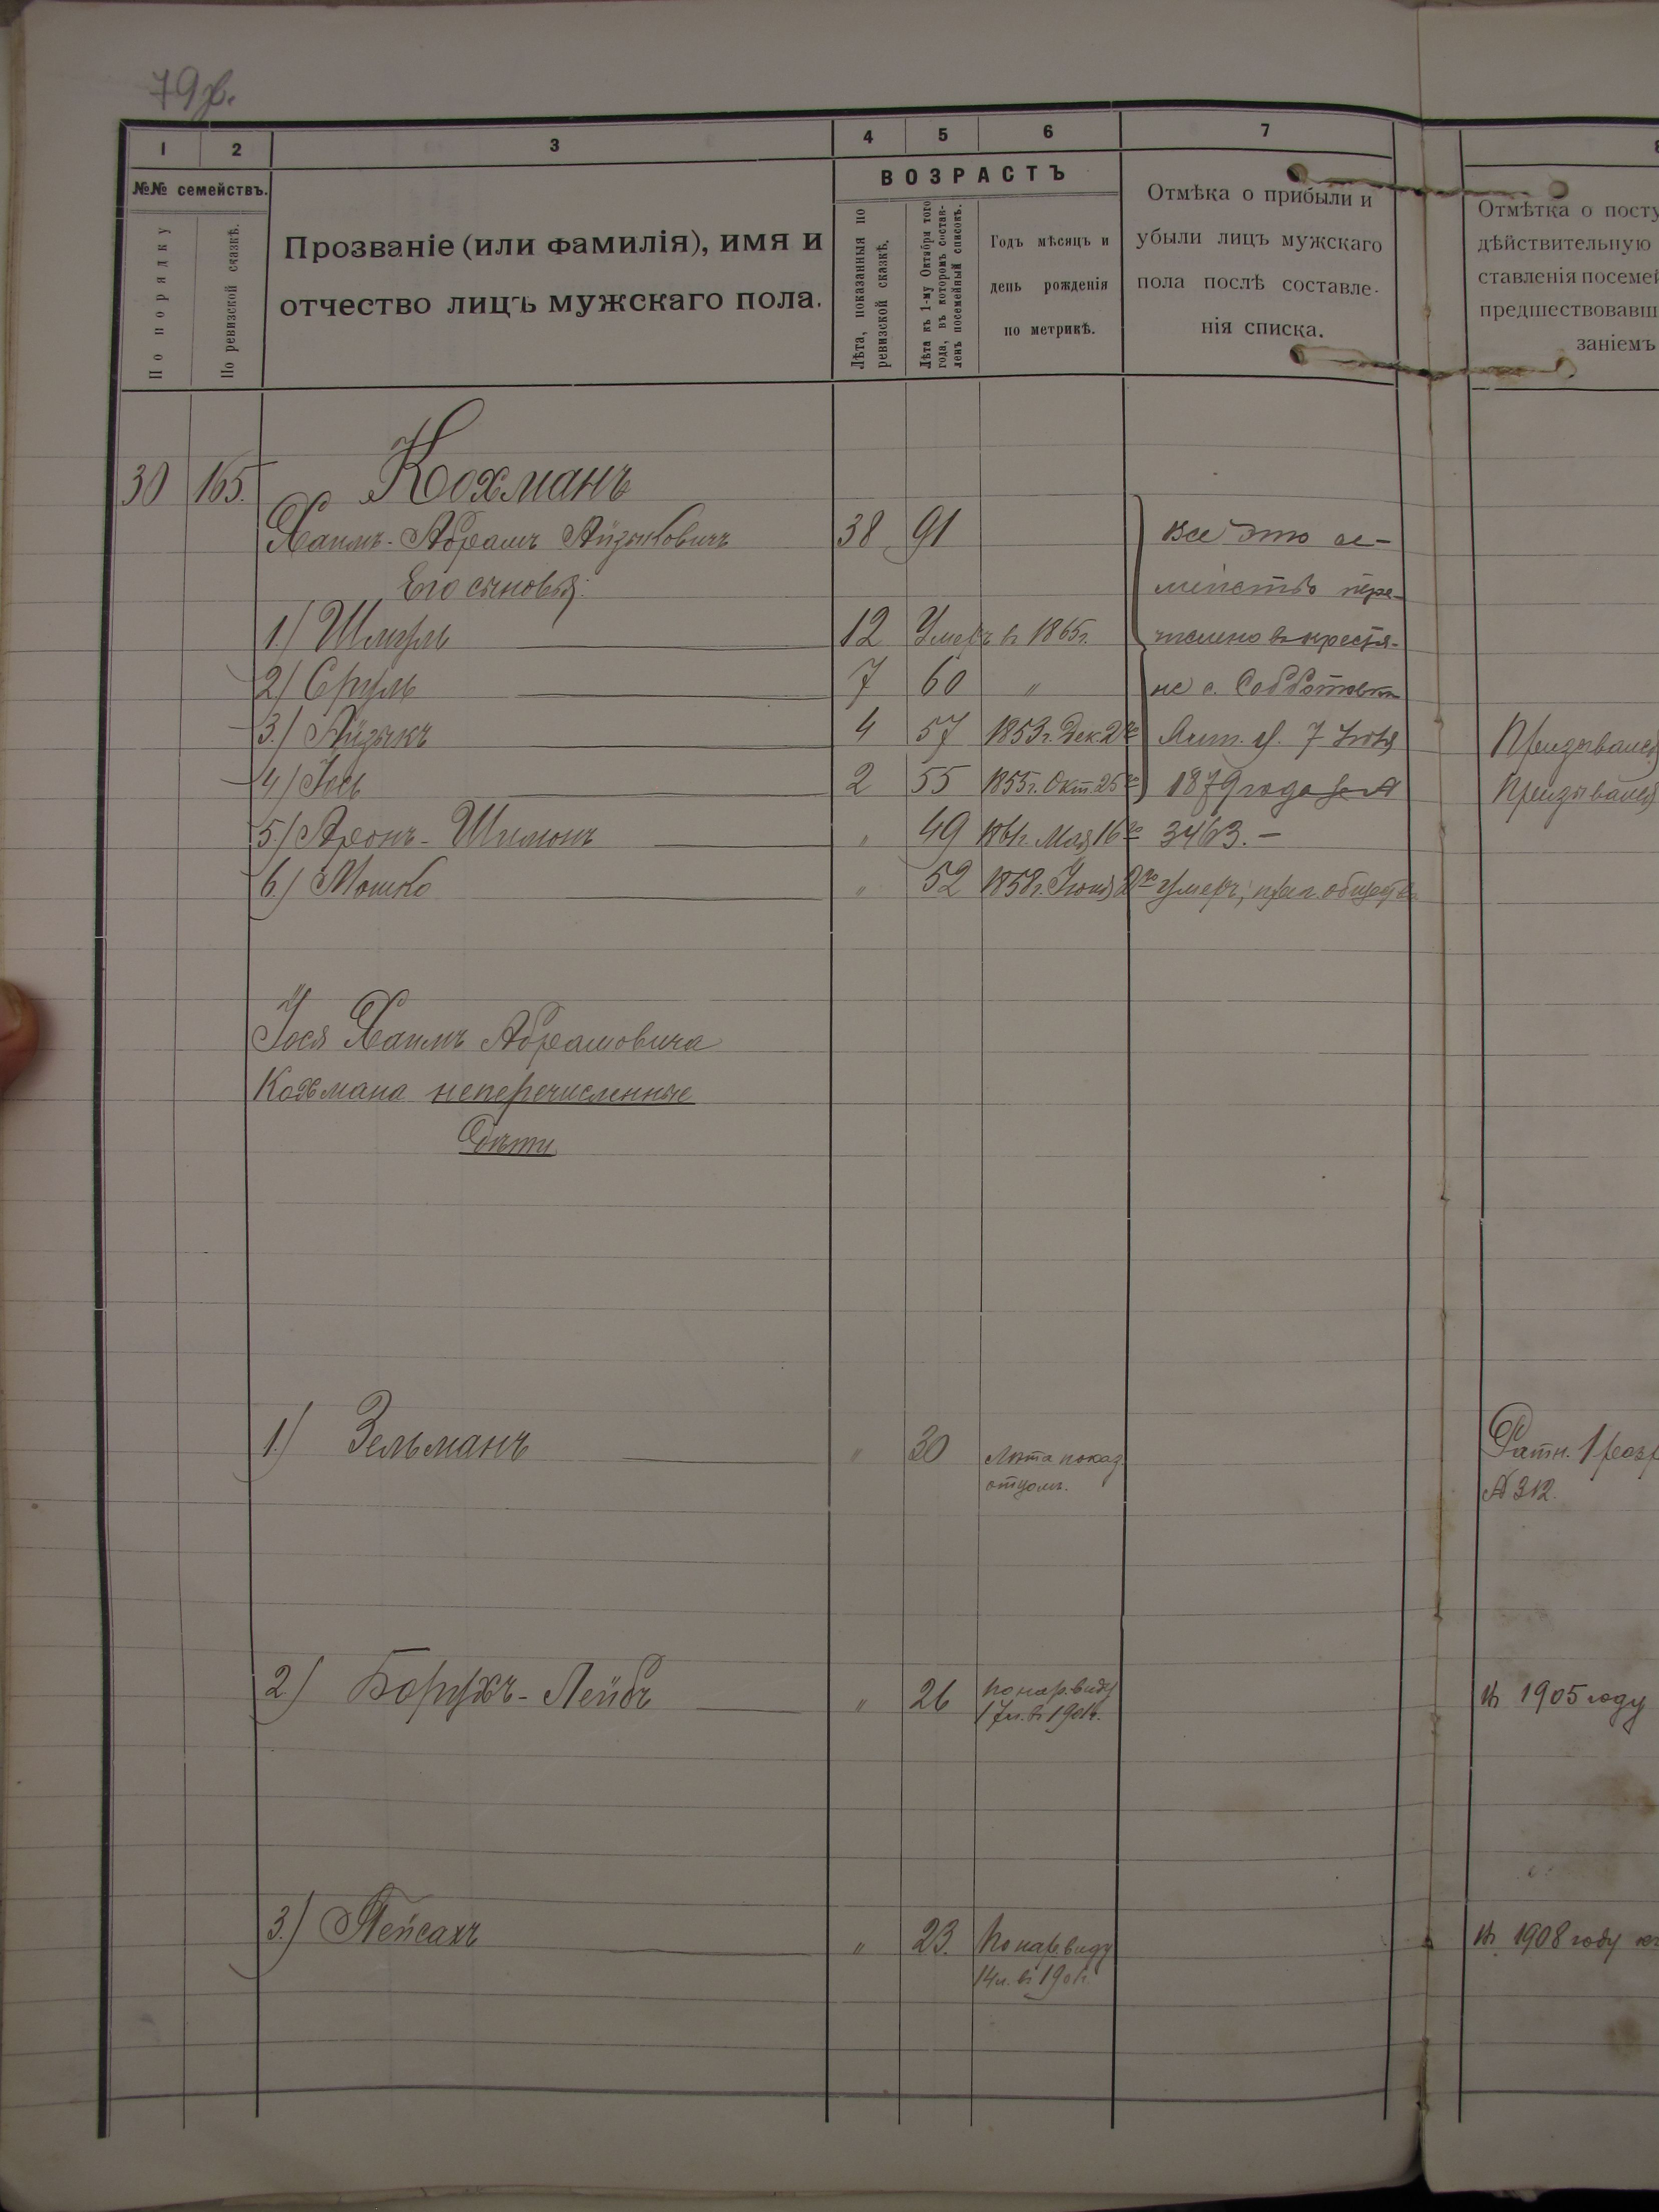 79
1 2 3 4 5 6 7
№№ семействъ.
По порядку
По ревизской сказкѣ.
Прозваніе (или фамилія), имя и
отчество лицъ мужскаго пола.
ВОЗРАСТЪ
Лѣта, показанныя по
ревизской сказкѣ.
Лѣта къ 1-му Октября того
года, въ которомъ состав-
ленъ посемейный списокъ.
Годъ мѣсяцъ и
день рожденія
по метрикѣ.
Отмѣка о прибыли и
убыли лицъ мужскаго
пола послѣ составле-
нія списка.
Отмѣтка о посту
дѣйствительную
ставленія посемей
предшествовавш
заніемъ
30 165. Кохманъ
Хаимъ-Абрамъ Айзыковичъ 38 91 все это се-
Его сыновья: мейство пере-
1.) Шмуль 12 Умеръ въ 1865г. числено въ крестья-
2.) Сруль 7 60 " не с.
3.) Айзыкъ 4 57 1853г. Дек. 2го 7 Іюля Призывался
4.) Іось 2 55 1855г. Окт. 25го 1879 года за № Призывался
5.) Аронъ-Шимонъ " 49 1861г. Мая 16го 3463.—
6.) Мошко " 52 1858г. Іюня 2го умеръ,
Іося Хаимъ Абрамовича
Кохмана неперечисленные
дѣти
1.) Зельманъ " 30 Лѣта показ. Ратн. 1 разр
отцомъ. № 312.
2) Борухъ-Лейбъ " 26 по нар. виду въ 1905 году
17 л. въ 1901г.
3.) Пейсахъ " 23. По нар. виду въ 1908 году
14 л. въ 1901г.